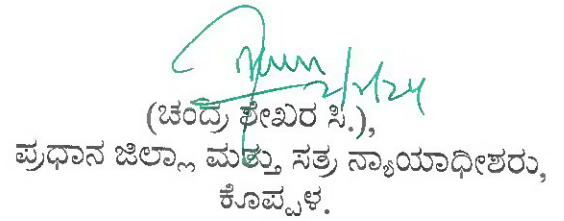 2/1/24
(ಚಂದ್ರ ಶೇಖರ ಸಿ.),
ಪ್ರಧಾನ ಜಿಲ್ಲಾ ಮತ್ತು ಸತ್ರ ನ್ಯಾಯಾಧೀಶರು,
ಕೊಪ್ಪಳ.